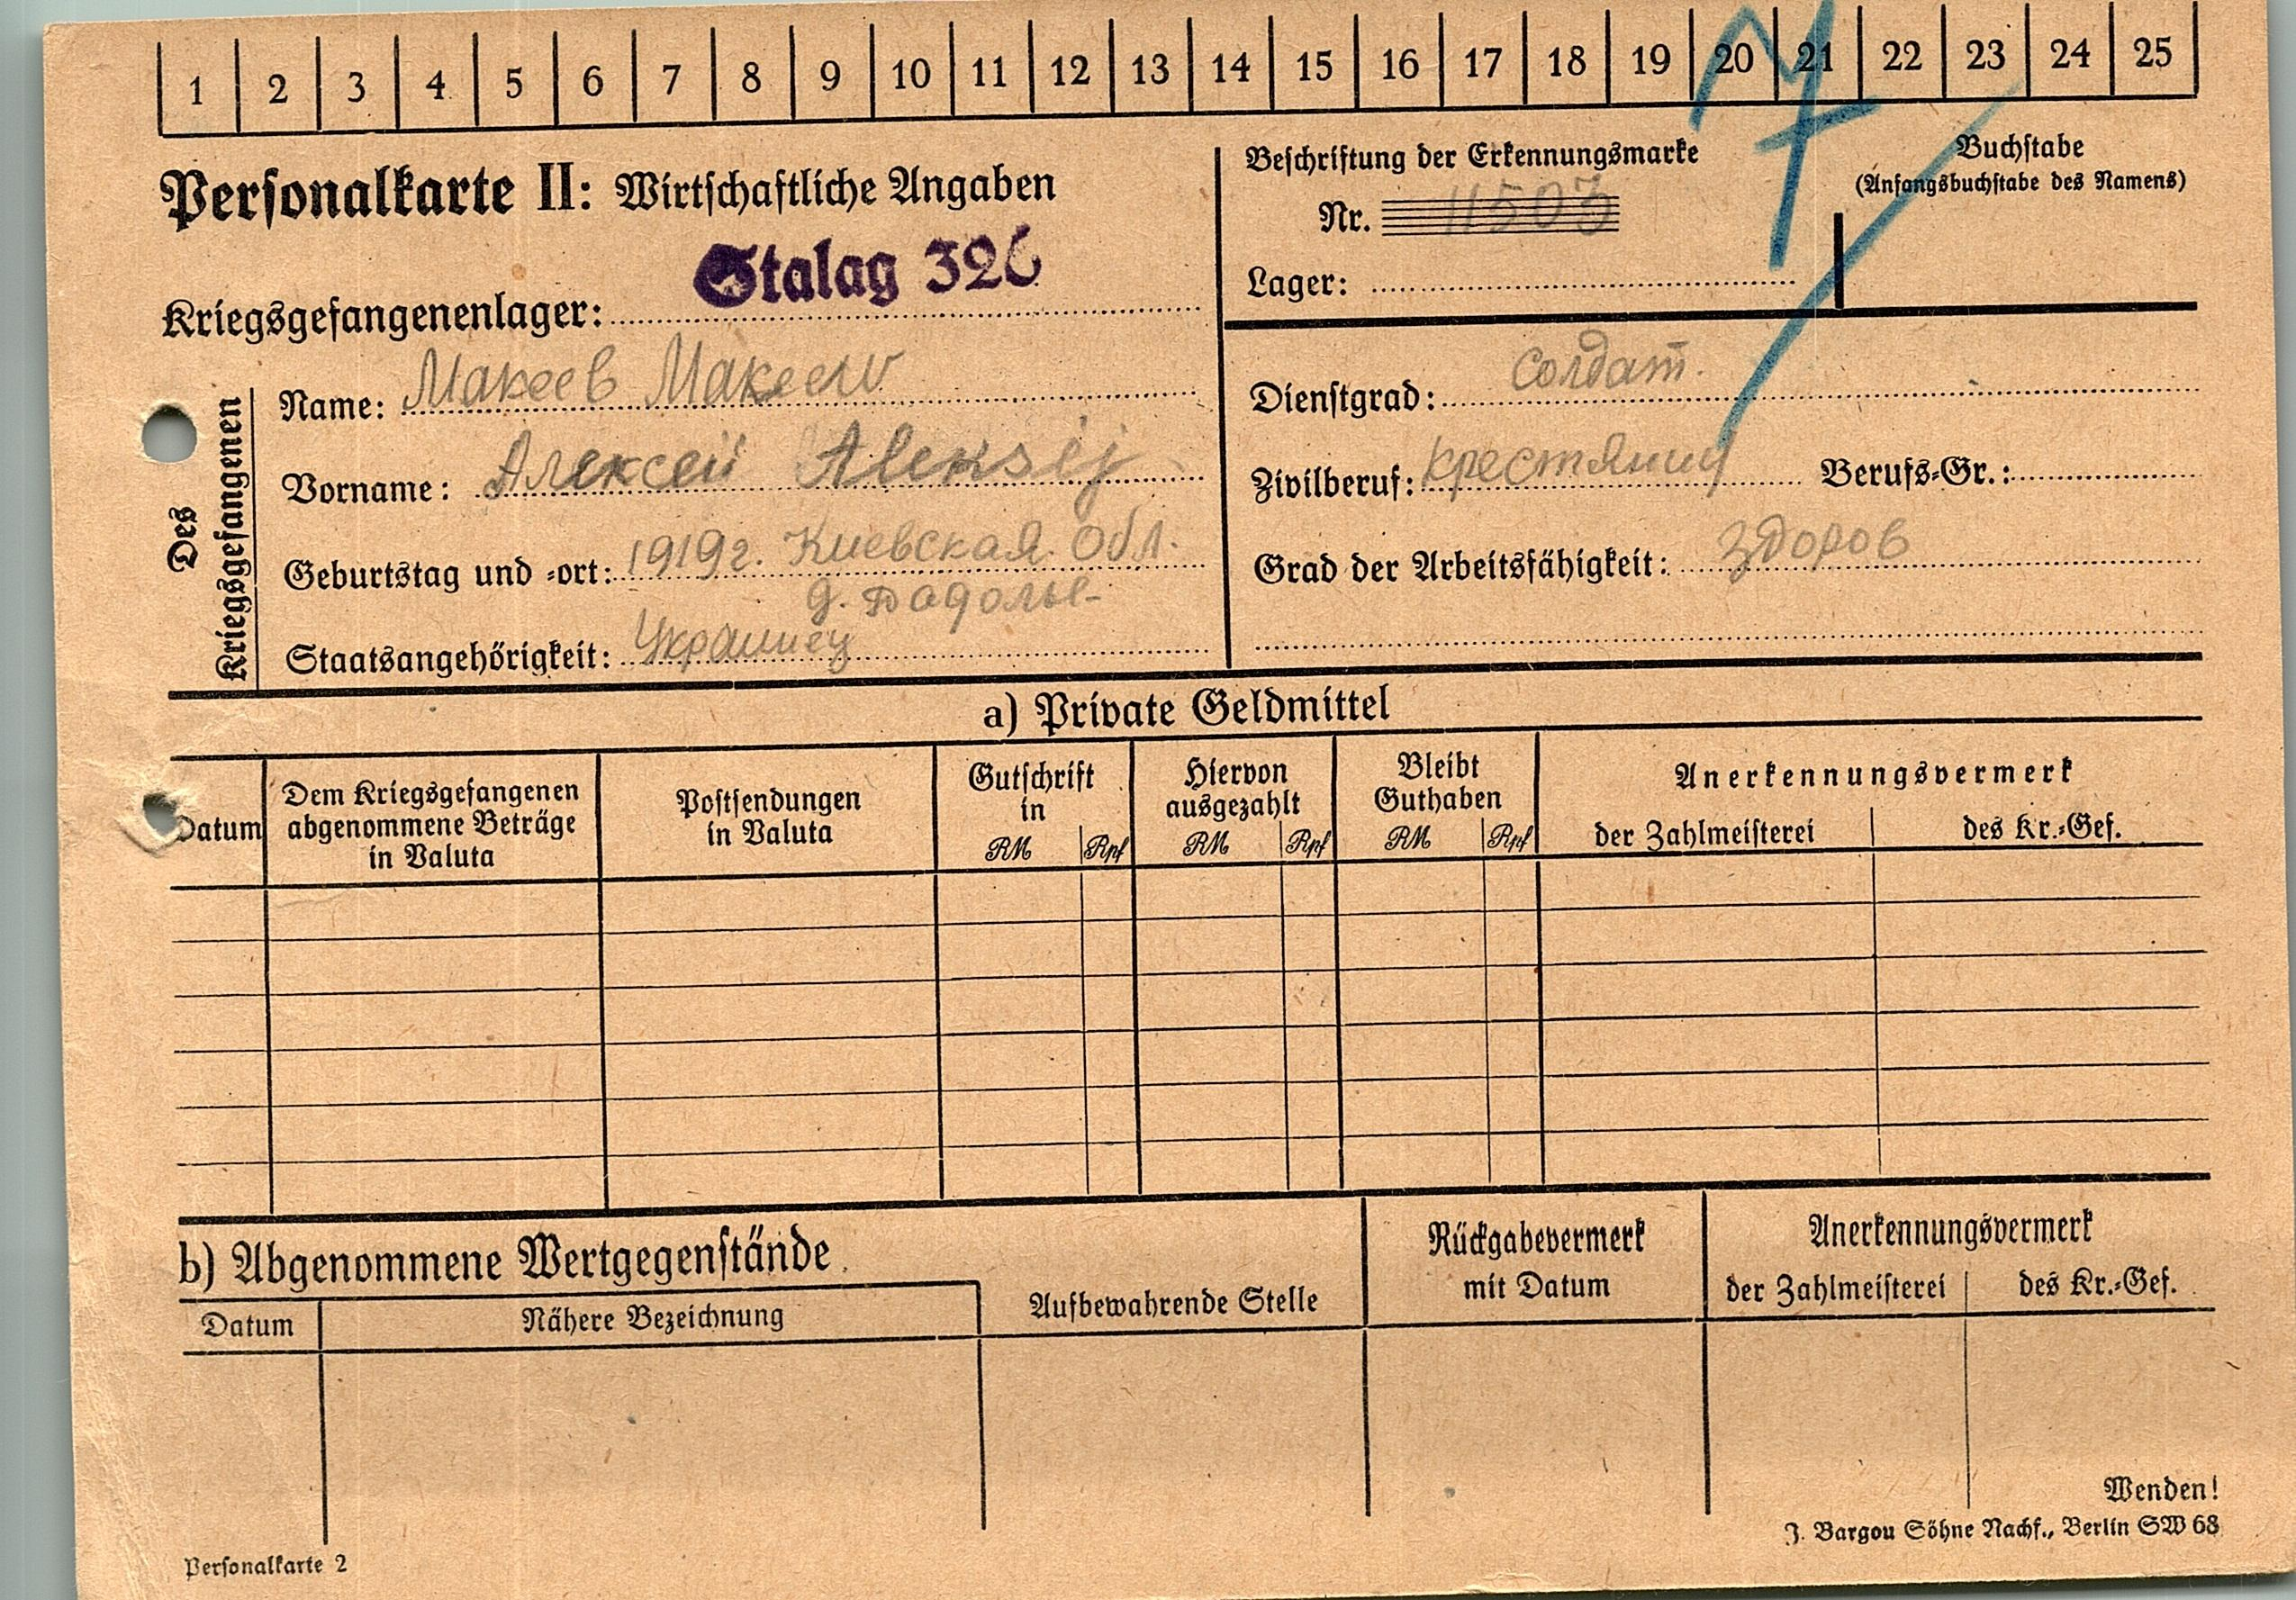 1 2 3 4 5 6 7 8 9 10 11 12 13 14 15 16 17 18 19 20 21 22 23 24 25
Personalkarte II: Wirtschaftliche Angaben
Stalag 326
Kriegsgefangenenlager:
Beschriftung der Erkennungsmarke
Nr. 11503
Lager:
Buchstabe
(Anfangsbuchstabe des Namens)
Des Kriegsgefangenen
Name: Макеев Makeew
Vorname: Алексей Aleksij
Geburtstag und -ort: 1919г. Киевская Обл.
д.
Staatsangehörigkeit: Украинец
Dienstgrad: Солдат.
Zivilberuf: крестянин Berufs-Gr.:
Grad der Arbeitsfähigkeit: здоров
a) Private Geldmittel
Datum
Dem Kriegsgefangenen
abgenommene Beträge
in Valuta
Postsendungen
in Valuta
Gutschrift
in
RM Rpf
Hiervon
ausgezahlt
RM Rpf
Bleibt
Guthaben
RM Rpf
Anerkennungsvermerk
der Zahlmeisterei des Kr.-Gef.
b) Abgenommene Wertgegenstände
Datum Nähere Bezeichnung
Aufbewahrende Stelle
Rückgabevermerk
mit Datum
Anerkennungsvermerk
der Zahlmeisterei des Kr.-Gef.
Wenden!
J. Bargou Söhne Nachf., Berlin SW 68
Personalkarte 2